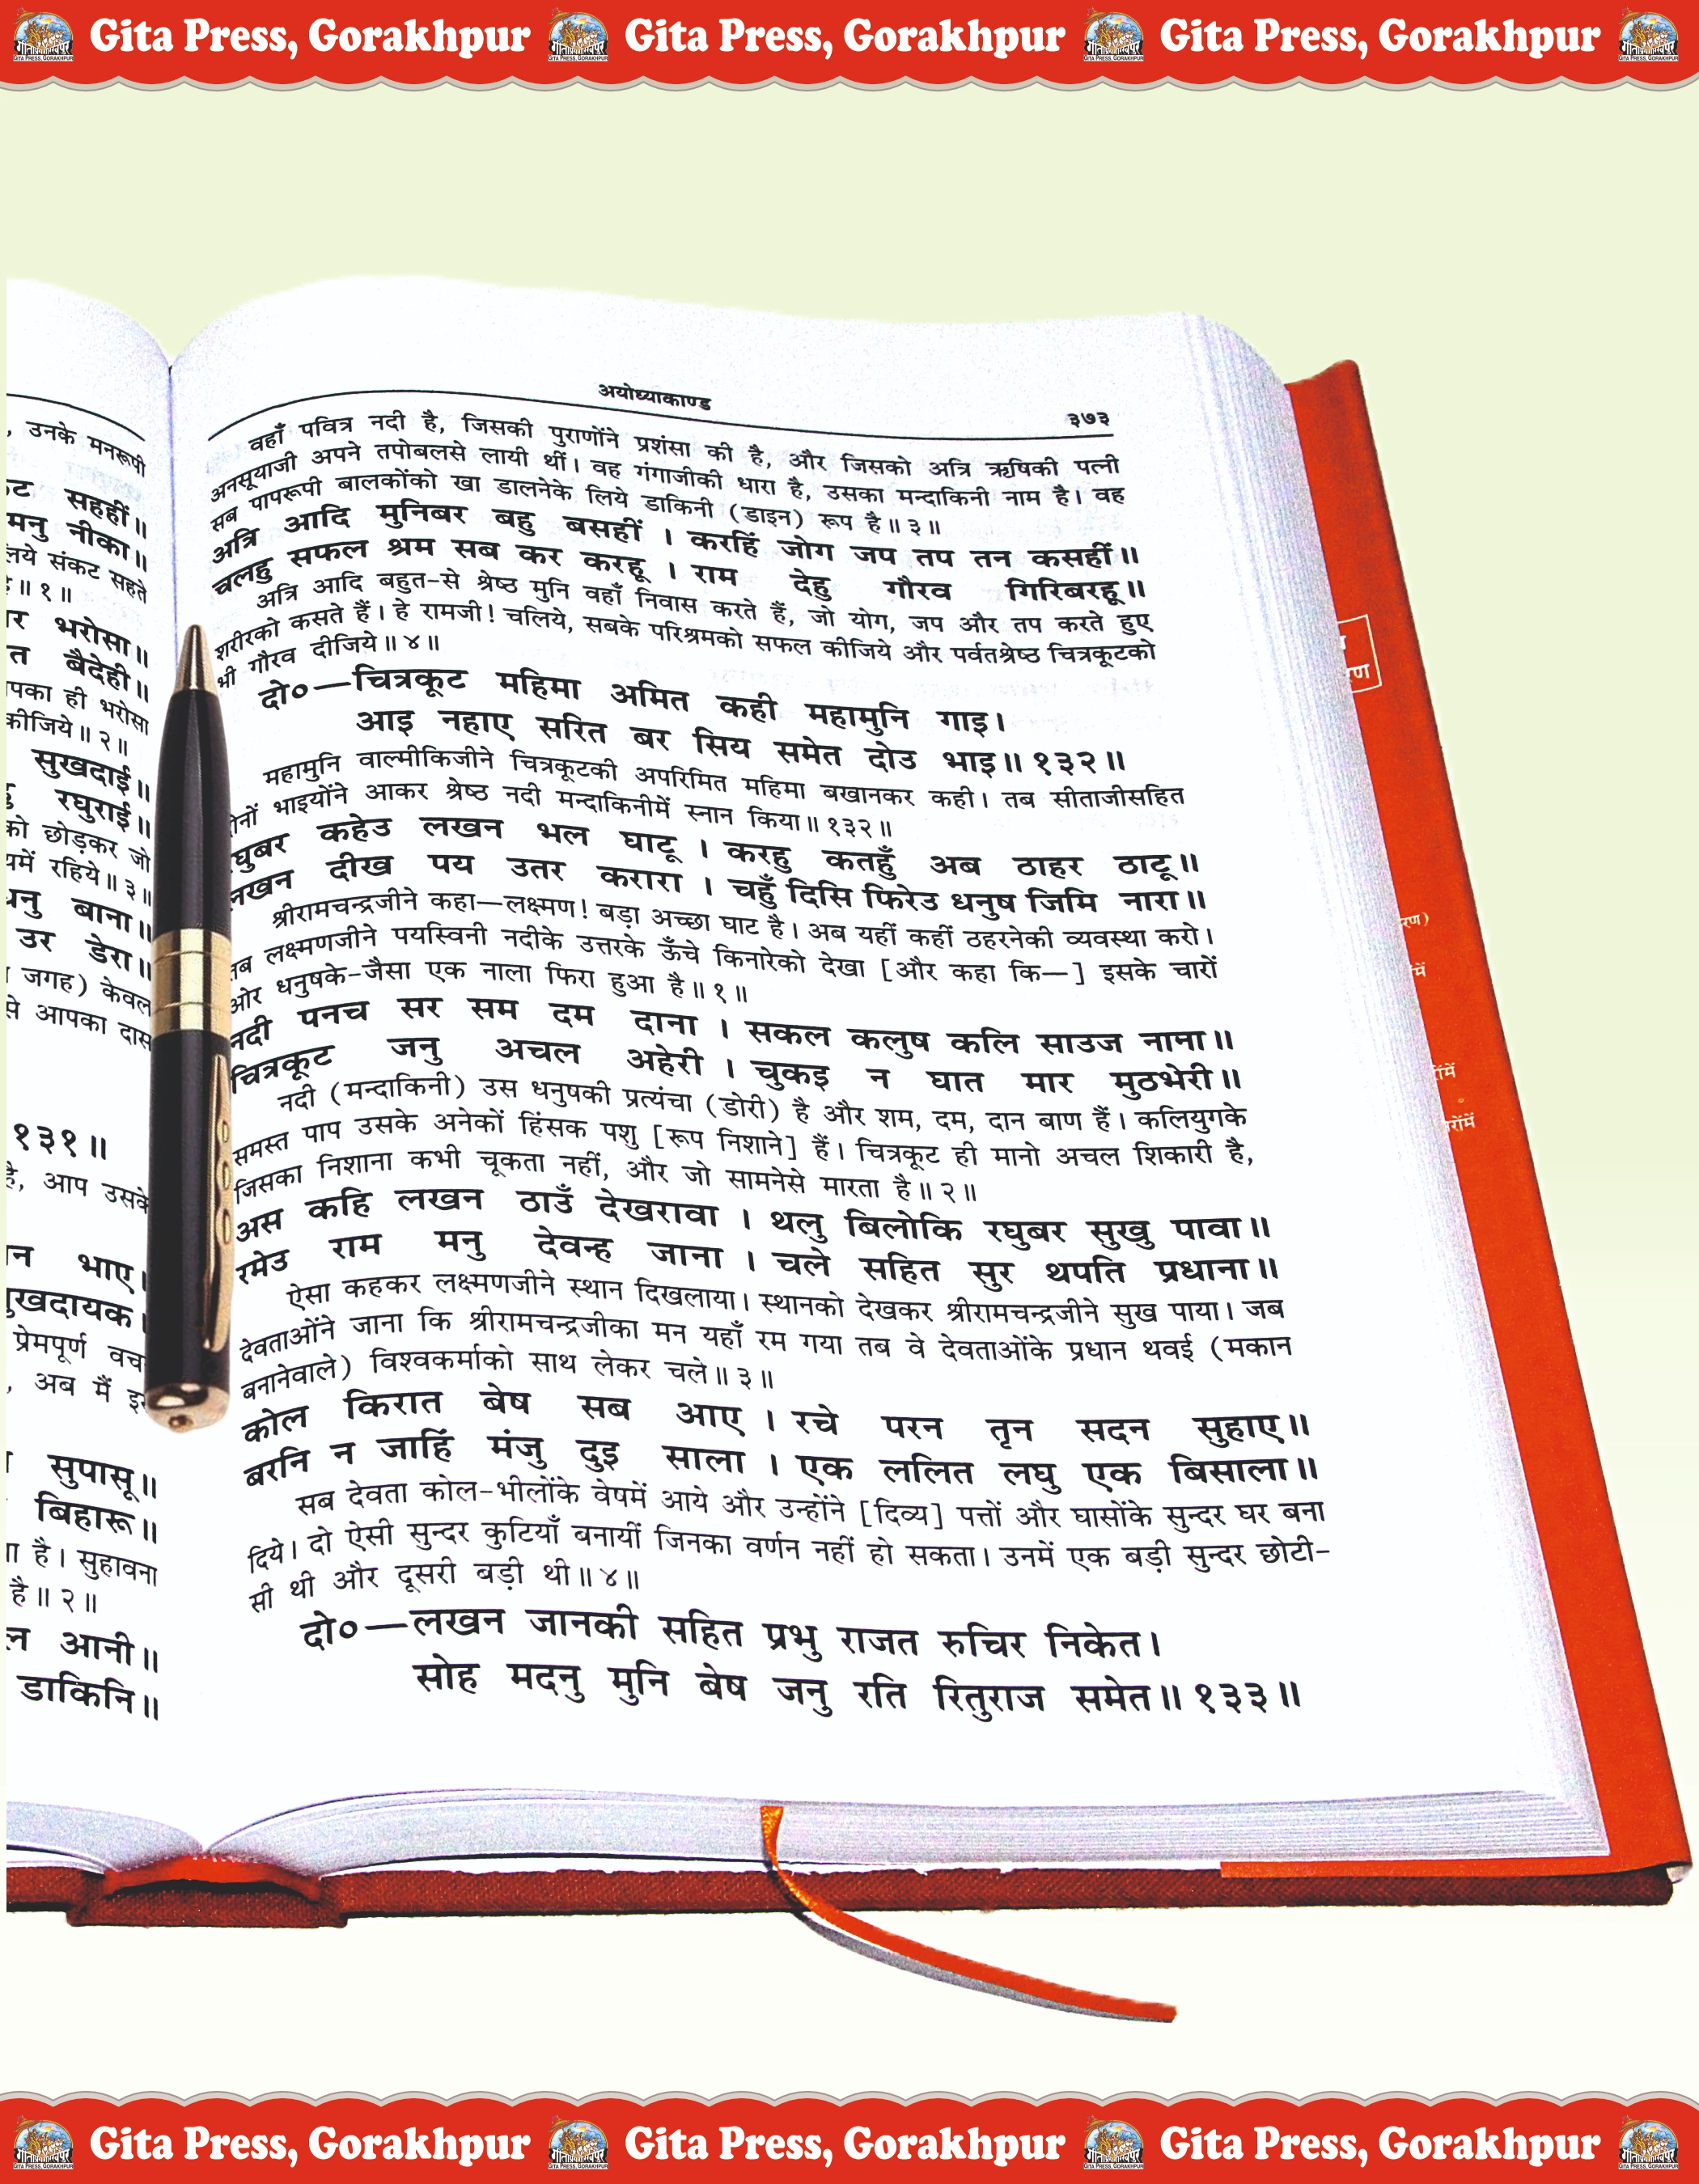 Gita Press, Gorakhpur Gita Press, Gorakhpur Gita Press, Gorakhpur
, उनके मनरूपी
सहहीं॥
मनु नीका॥
लये संकट सहते
॥१॥
भरोसा॥
बैदेही॥
पका ही भरोसा
कीजिये॥२॥
सुखदाई॥
रघुराई॥
को छोड़कर जो
यमें रहिये॥३॥
धनु बाना॥
उर डेरा॥
जगह) केवल
से आपका दास
१३१॥
है, आप उसके
भाए।
सुखदायक।
प्रेमपूर्ण वच
, अब मैं इस
सुपासू॥
बिहारू॥
है। सुहावना
है॥२॥
आनी॥
डाकिनि॥
अयोध्याकाण्ड
३७३
वहाँ पवित्र नदी है, जिसकी पुराणोंने प्रशंसा की है, और जिसको अत्रि ऋषिकी पत्नी
अनसूयाजी अपने तपोबलसे लायी थीं। वह गंगाजीकी धारा है, उसका मन्दाकिनी नाम है। वह
सब पापरूपी बालकोंको खा डालनेके लिये डाकिनी (डाइन) रूप है॥३॥
अत्रि आदि मुनिबर बहु बसहीं । करहिं जोग जप तप तन कसहीं॥
चलहु सफल श्रम सब कर करहू । राम देहु गौरव गिरिबरहू॥
अत्रि आदि बहुत-से श्रेष्ठ मुनि वहाँ निवास करते हैं, जो योग, जप और तप करते हुए
शरीरको कसते हैं। हे रामजी! चलिये, सबके परिश्रमको सफल कीजिये और पर्वतश्रेष्ठ चित्रकूटको
भी गौरव दीजिये॥४॥
दो०—चित्रकूट महिमा अमित कही महामुनि गाइ।
आइ नहाए सरित बर सिय समेत दोउ भाइ॥१३२॥
महामुनि वाल्मीकिजीने चित्रकूटकी अपरिमित महिमा बखानकर कही। तब सीताजीसहित
दोनों भाइयोंने आकर श्रेष्ठ नदी मन्दाकिनीमें स्नान किया॥१३२॥
घुबर कहेउ लखन भल घाटू । करहु कतहुँ अब ठाहर ठाटू॥
लखन दीख पय उतर करारा । चहुँ दिसि फिरेउ धनुष जिमि नारा॥
श्रीरामचन्द्रजीने कहा—लक्ष्मण! बड़ा अच्छा घाट है। अब यहीं कहीं ठहरनेकी व्यवस्था करो।
तब लक्ष्मणजीने पयस्विनी नदीके उत्तरके ऊँचे किनारेको देखा [और कहा कि—] इसके चारों
ओर धनुषके-जैसा एक नाला फिरा हुआ है॥१॥
नदी पनच सर सम दम दाना । सकल कलुष कलि साउज नाना॥
चित्रकूट जनु अचल अहेरी । चुकइ न घात मार मुठभेरी॥
नदी (मन्दाकिनी) उस धनुषकी प्रत्यंचा (डोरी) है और शम, दम, दान बाण हैं। कलियुगके
समस्त पाप उसके अनेकों हिंसक पशु [रूप निशाने] हैं। चित्रकूट ही मानो अचल शिकारी है,
जिसका निशाना कभी चूकता नहीं, और जो सामनेसे मारता है॥२॥
अस कहि लखन ठाउँ देखरावा । थलु बिलोकि रघुबर सुखु पावा॥
रमेउ राम मनु देवन्ह जाना । चले सहित सुर थपति प्रधाना॥
ऐसा कहकर लक्ष्मणजीने स्थान दिखलाया। स्थानको देखकर श्रीरामचन्द्रजीने सुख पाया। जब
देवताओंने जाना कि श्रीरामचन्द्रजीका मन यहाँ रम गया तब वे देवताओंके प्रधान थवई (मकान
बनानेवाले) विश्वकर्माको साथ लेकर चले॥३॥
कोल किरात बेष सब आए । रचे परन तृन सदन सुहाए॥
बरनि न जाहिं मंजु दुइ साला । एक ललित लघु एक बिसाला॥
सब देवता कोल-भीलोंके वेषमें आये और उन्होंने [दिव्य] पत्तों और घासोंके सुन्दर घर बना
दिये। दो ऐसी सुन्दर कुटियाँ बनायीं जिनका वर्णन नहीं हो सकता। उनमें एक बड़ी सुन्दर छोटी-
सी थी और दूसरी बड़ी थी॥४॥
दो०—लखन जानकी सहित प्रभु राजत रुचिर निकेत।
सोह मदनु मुनि बेष जनु रति रितुराज समेत॥१३३॥
Gita Press, Gorakhpur Gita Press, Gorakhpur Gita Press, Gorakhpur